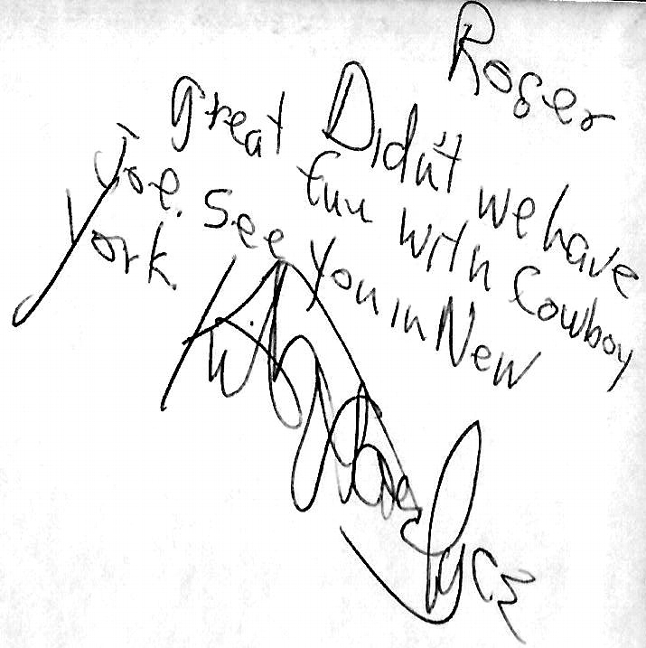 Roger
great Didn't we have
fun with Cowboy
Joe. See you in New
York.